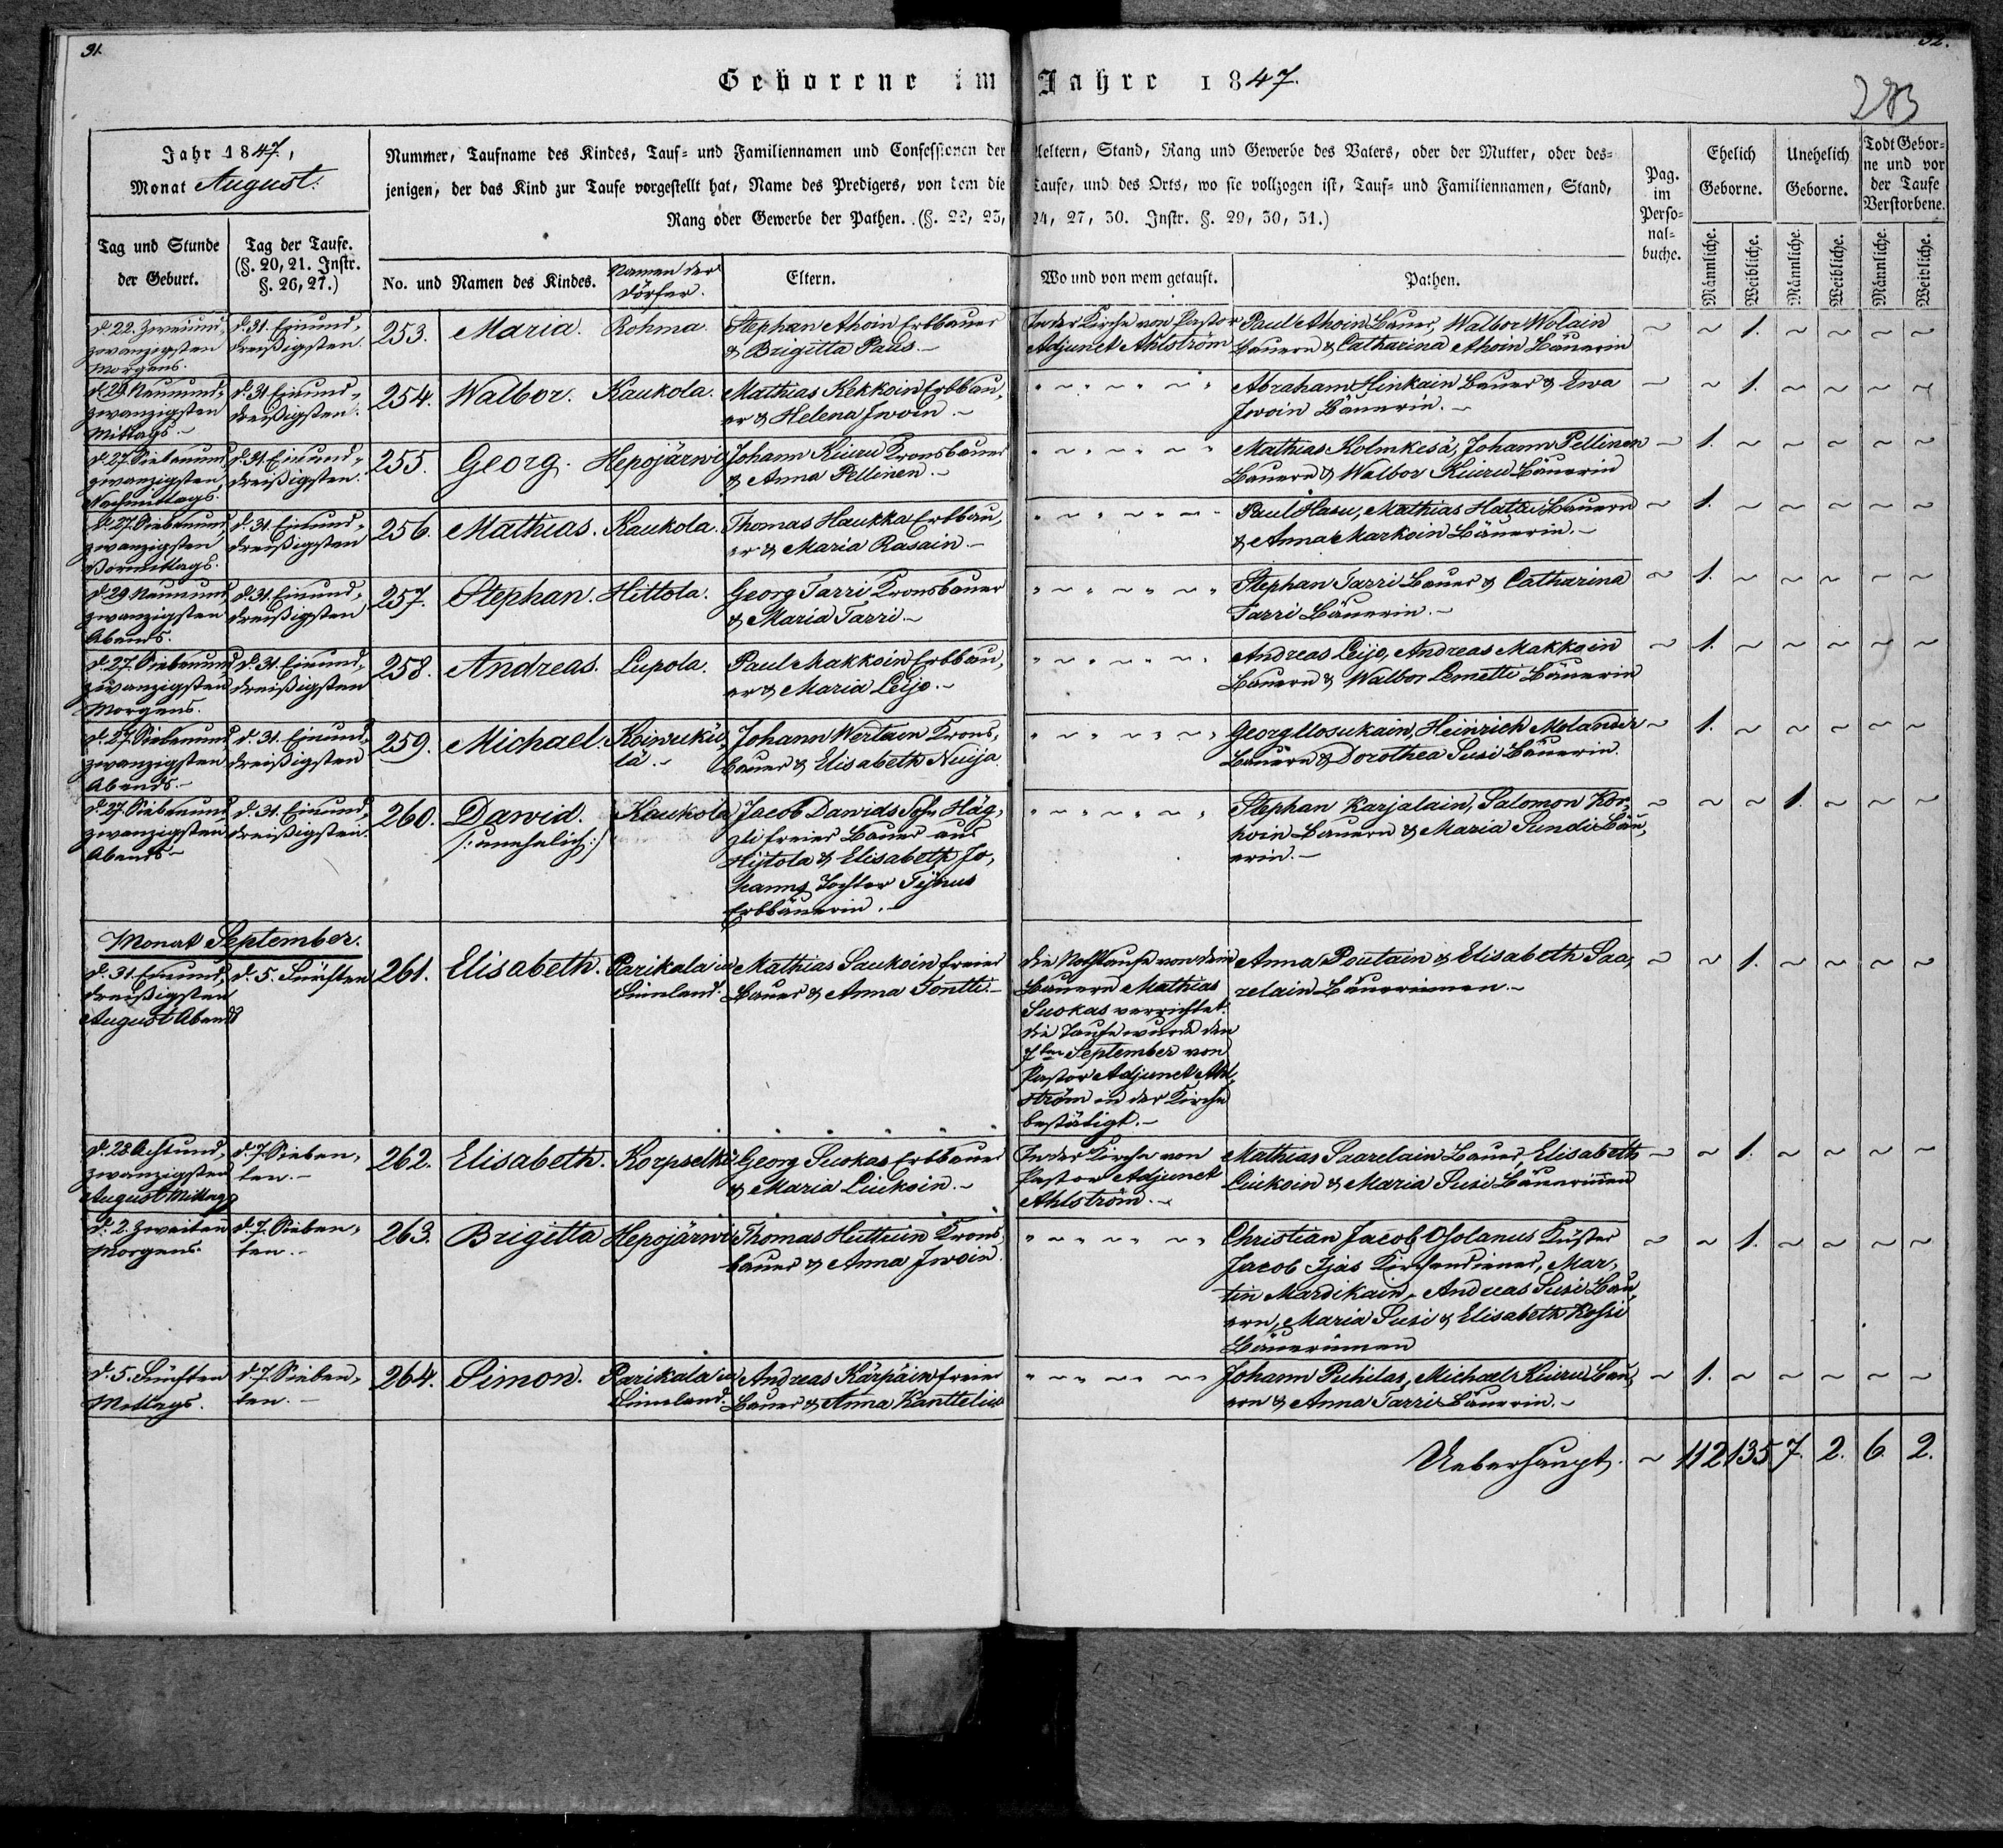 31.
32.
Geborene im Jahre 1847.
283
Jahr 1847,
Monat August:
Nummer, Taufname des Kindes, Tauf= und Familiennamen und Confessionen der Aeltern, Stand, Rang und Gewerbe des Vaters, oder der Mutter, oder des=
jenigen, der das Kind zur Taufe vorgestellt hat, Name des Predigers, von dem die Taufe, und des Orts, wo sie vollzogen ist, Tauf= und Familiennamen, Stand,
Rang oder Gewerbe der Pathen. (§. 22, 23, 24, 27, 30. Instr. §. 29, 30, 31.)
Pag.
im
Perso=
nal=
buche.
Ehelich
Geborne.
Unehelich
Geborne.
Todt Gebor=
ne und vor
der Taufe
Verstorbene.
Tag und Stunde
der Geburt.
Tag der Taufe.
(§. 20, 21. Instr.
§. 26, 27.)
No. und Namen des Kindes.
Namen der
Dörfer.
Eltern.
Wo und von wem getauft.
Pathen.
Männliche.
Weibliche.
Männliche.
Weibliche.
Männliche.
Weibliche.
d. 22. Zweiund,
zwanzigsten
Morgens.
d. 31. Einund,
dreißigsten.
253. Maria.
Rohma.
Stephan Ahoin Erbbauer
& Brigitta Paus.~
In der Kirche von Pastor
Adjunct Ahlström
Paul Ahoin Bauer, Walbor Wolain
Bauern & Catharina Ahoin Bäuerin
~ ~ 1. ~ ~ ~ ~
d. 29. Neunund,
zwanzigsten
Mittags.~
d. 31. Einund,
dreißigsten.
254. Walbor.
Kaukola.
Mathias Kekkoin Erbbau,
er & Helena Iwoin.~
" ~ " ~ " ~ "
Abraham Hinkain Bauer & Ewa
Iwoin Bäuerin.~
~ ~ 1. ~ ~ ~ ~
d. 27. Siebenund
zwanzigsten
Nachmittags.
d. 31. Einund,
dreißigsten.
255. Georg.
Hepojärwi
Johann Kiuru Kronsbauer
& Anna Pellinen.~
" ~ " ~ " ~ "
Mathias Holmkesä, Johann Pellinen
Bauern & Walbor Kiuru Bäuerin
~ 1. ~ ~ ~ ~ ~
d. 27. Siebenund
zwanzigsten
Vormittags.
d. 31. Einund,
dreißigsten
256. Mathias.
Kaukola.
Thomas Haukka Erbbau,
er & Maria Rasain.~
" ~ " ~ " ~ "
Paul Hasu, Mathias Hatka Bauern
& Anna Markoin Bäuerin.~
~ 1. ~ ~ ~ ~ ~
d. 29. Neunund
zwanzigsten
Abends.
d. 31. Einund,
dreißigsten
257. Stephan.
Hittola.
Georg Tarri Kronsbauer
& Maria Tarri.~
" ~ " ~ " ~ "
Stephan Tarri Bauer & Catharina
Tarri Bäuerin.~
~ 1. ~ ~ ~ ~ ~
d. 27. Siebenund
zwanzigsten
Morgens.
d. 31. Einund,
dreißigsten
258. Andreas.
Lupola.
Paul Makkoin Erbbau,
er & Maria Leijo.~
" ~ " ~ " ~ "
Andreas Leijo, Andreas Makkoin
Bauern & Walbor Lemetti Bäuerin
~ 1. ~ ~ ~ ~ ~
d. 27. Siebenund
zwanzigsten
Abends.~
d. 31. Einund,
dreißigsten
259. Michael.
Koiwukü,
lä.~
Johann Wertain Krons,
bauer & Elisabeth Nuija.
" ~ " ~ " ~ "
Georg Uosukain, Heinrich Molander
Bauern & Dorothea Susi Bäuerin.
~ 1. ~ ~ ~ ~ ~
d. 27. Siebenund
zwanzigsten
Abends~
d. 31. Einund,
dreißigsten.
260. Dawid.
/: unehelich :/
Kaukola
Jacob Dawids Sohn Häg,
freier Bauer aus
Hijtola & Elisabeth Jo,
hanns Tochter
Erbbäuerin.~
" ~ " ~ " ~ "
Stephan Karjalain, Salomon Kor,
hoin Bauern & Maria Sundi Bäu,
erin.~
~ ~ ~ 1. ~ ~ ~
Monat September.
d. 31. Einund,
dreißigsten
August Abends
d. 5. Fünften
261. Elisabeth.
Parikala in
Finnland.
Mathias Saukoin freier
Bauer & Anna Tontti.~
Die Nothtaufe von dem
Bauern Mathias
Suokas verrichtet.
Die Taufe wurde den
7ten September von
Pastor Adjunct Ahl,
ström in der Kirche
bestätigt.~
Anna Poutain & Elisabeth Saa,
relain Bäuerinnen.~
~ ~ 1. ~ ~ ~ ~
d. 28 Achtund,
zwanzigsten
August Mittags
d. 7 Sieben,
ten.~
262. Elisabeth.
Korpselkä
Georg Suokas Erbbauer
& Maria Liukoin.~
In der Kirche von
Pastor Adjunct
Ahlström.~
Mathias Saarelain Bauer, Elisabeth
Liukoin & Maria Susi Bäuerinnen
~ ~ 1. ~ ~ ~ ~
d. 2. Zweiten
Morgens.
d. 7. Sieben,
ten.~
263. Brigitta
Hepojärwi
Thomas Huttuin Krons,
bauer & Anna Iwoin.
" ~ " ~ " ~ "
Christian Jacob Osolanus Küster
Jacob Ijäs Kirchendiener, Mar,
tin Mardikain, Andreas Susi Bau,
ern, Maria Susi & Elisabeth Kossi
Bäuerinnen
~ ~ 1. ~ ~ ~ ~
d. 5. Fünften
Mittags.
d. 7 Sieben,
ten.~
264. Simon.
Parikala in
Finnland.
Andreas Kärpäin freier
Bauer & Anna Kanttelius
" ~ " ~ " ~ "
Johann Puhilas, Michael Kiuru Bau,
ern & Anna Tarri Bäuerin.~
~ 1. ~ ~ ~ ~ ~
Ueberhaupt. ~ 112 135 7. 2. 6. 2.